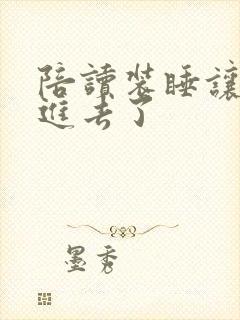 陪讀裝睡讓
進去了
墨秀